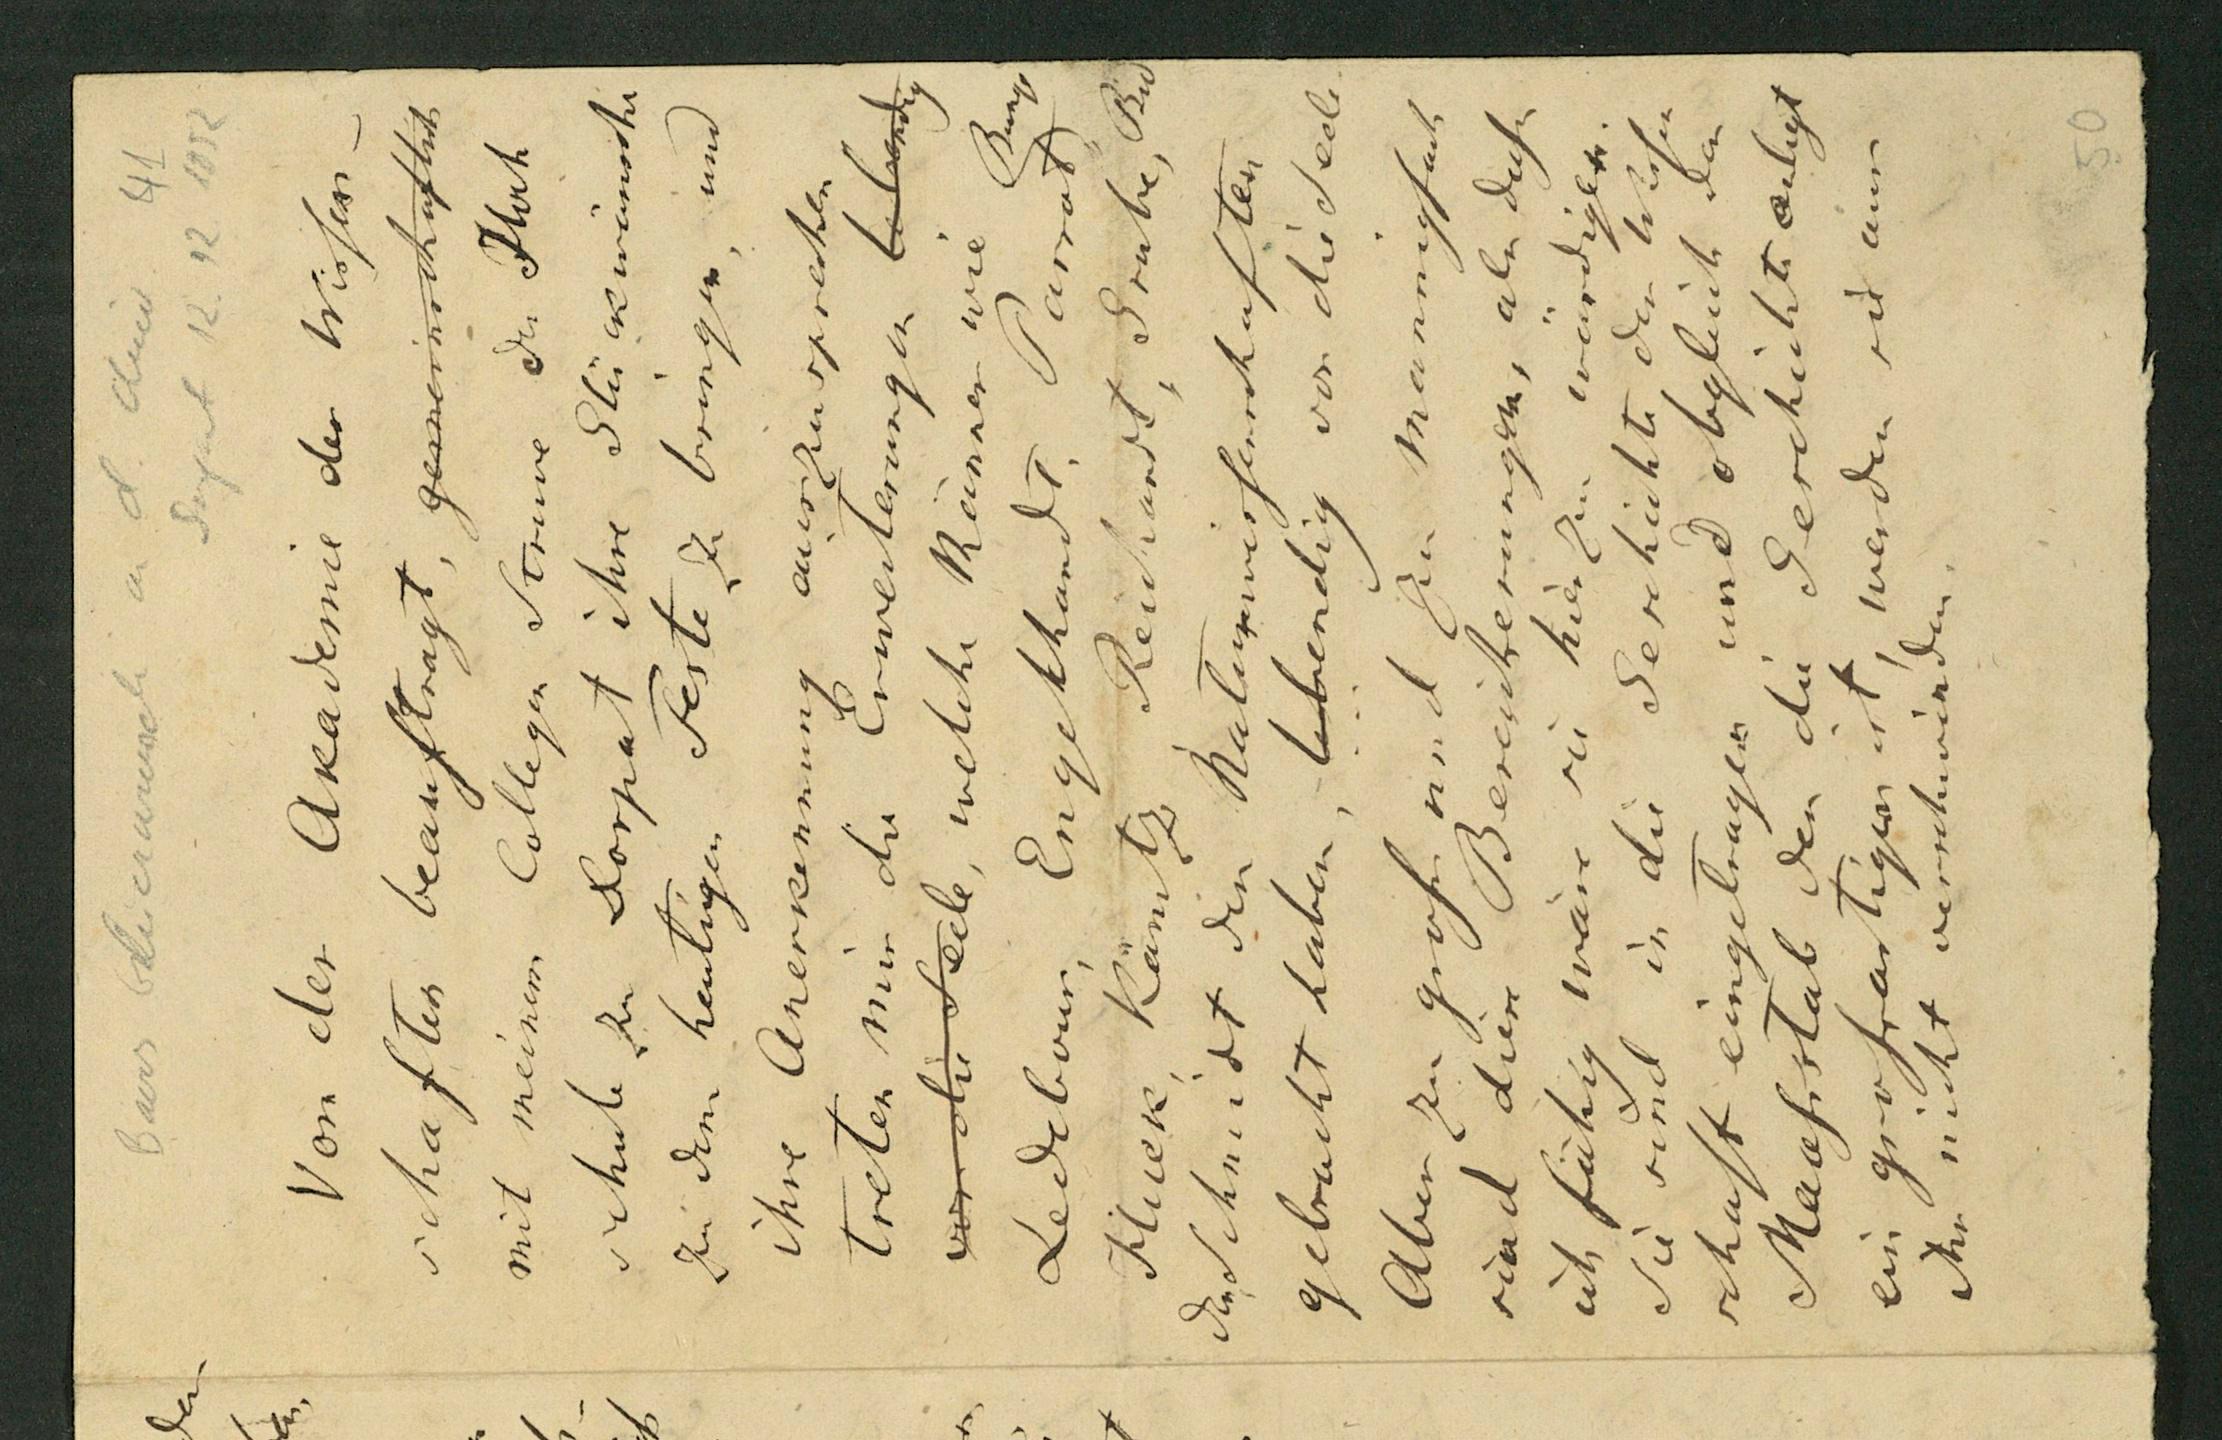 Baers Glückwunsch an d. Univ 41
Dorpat 12. 12 1852
Von der Akademie der Wissen-
schaften beauftragt, gemeinschaftlich
mit meinem Collegen Struve der Hoch
schule zu Dorpat ihre Glückwünsche
zu dem heutigen Feste zu bringen, und
ihre Anerkennung auszusprechen
treten mir die Erweiterungen lebendig
vor die Seele, welche Männer wie
Ledebour, Engelhardt, Parrot, Bunge
Hueck, Kämtz, Reichardt, Grube, Bid
der, Schmidt den Naturwissenschaften
gebracht haben, lebendig vor die Seele
Aber zu groß und zu mannigfach
sind diese Bereicherungen, als daß
ich fähig wäre sie hier zu würdigen.
Sie sind in die Geschichte der Wissen
schaft eingetragen und obgleich der
Maaßstab den die Geschichte anlegt
ein großartiger ist, werden sie aus
ihr nicht verschwinden.
50